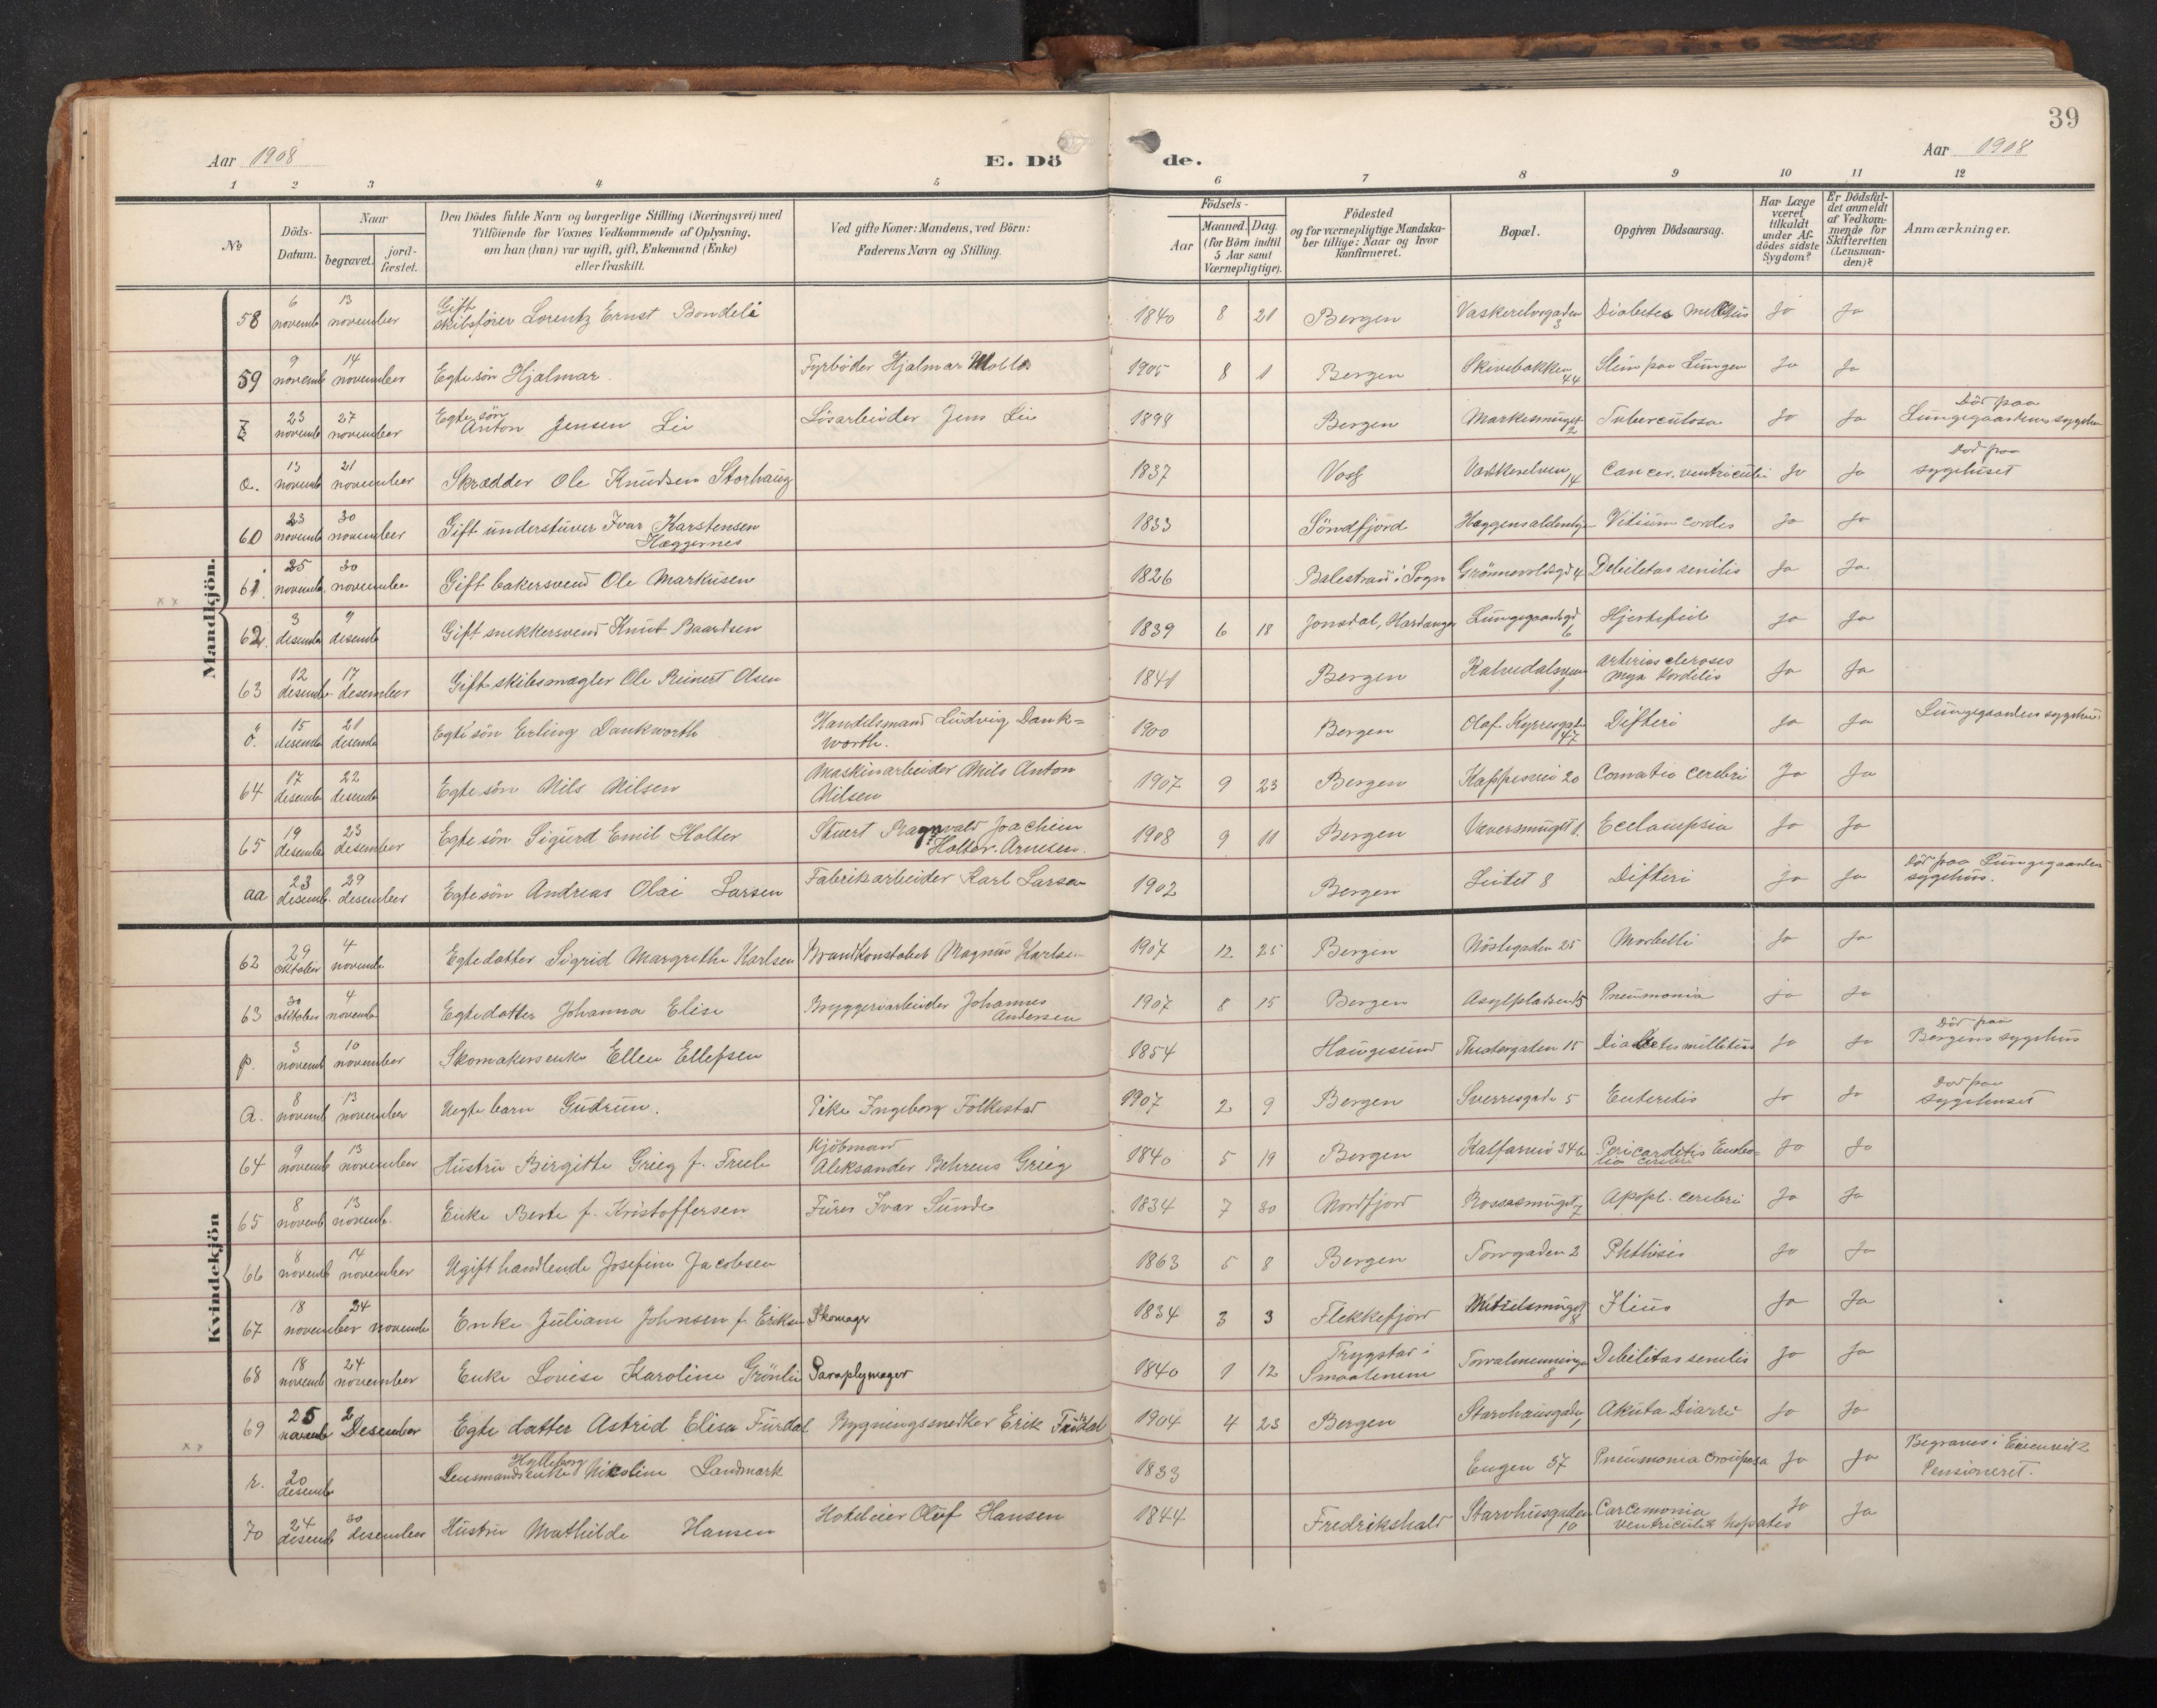 39
Aar 1908 E. Dö de. Aar 1908
1 2 3 4 5 6 7 8 9 10 11 12
№
Döds-Datum.
Naar
begravet.
jord-fæstet.
Den Dödes fulde Navn og borgerlige Stilling (Næringsvei) med
Tilföiende for Voxnes Vedkommende af Oplysning,
om han (hun) var ugift, gift, Enkemand (Enke)
eller fraskilt.
Ved gifte Koner: Mandens, ved Börn:
Faderens Navn og Stilling.
Födsels-
Aar
Maaned. Dag.
(for Börn indtil
5 Aar samt
Værnepligtige).
Födested
og for værnepligtige Mandska-
ber tillige: Naar og hvor
konfirmeret.
Bopæl.
Opgiven Dödsaarsag.
Har Læge
været
tilkaldt
under Af-
dödes sidste
Sygdom?
Er Dödsfal-
det anmeldt
af Vedkom-
mende for
Skifteretten
(Lensman-
den)?
Anmærkninger.
Mandkjön.
58 6 novemb 13 november Gift skibsförer Lorentz Ernst Bondeli 1840 8 21 Bergen Vaskerelvsgaden 3 Diabetes Ja Ja
59 9 novemb 14 november Egte sön Hjalmar. Fyrböder Hjalmar 1905 8 1 Bergen Skivebakken 44 Slim paa Lungen Ja Ja
23 novemb 27 november Egte sön Anton Jensen Lie Lösarbeider Jens Lie 1898 Bergen Markesmuget 2 Tuberculosa Ja Ja Död paa Lungegaardens sygehus
æ. 13 novemb 21 november Skrædder Ole Knudsen Storhaug 1837 Voss Vaskerelven 14 Cancer. ventriculi Ja Ja Död paa sygehuset
60 23 novemb 30 november Gift understuver Ivar Karstensen Hæggernes 1833 Söndfjord Vitium cordis Ja Ja
61. 25 novemb. 30 november Gift bakersvend Ole Markusen 1826 Balestrand i Sogn Grönnevoldsgd 4 Debiletas senilis Ja Ja
62. 3 desemb 9 desemb Gift snekkersvend Knut Baardsen 1839 6 18 Jonsdal, Hardanger Lungegaardsgd 6 Hjertefeil Ja Ja
63 12 desemb. 17 desember Gift skibsmægler Ole Reinert Olsen 1841 Bergen Kalvedalsveien Arterioscleroses Ja Ja
ö. 15 desemb 21 desemb Egte sön Erling Dankworth Handelsmand Ludvig Dank=
worth. 1900 Bergen Olaf Kyrresgade 47 Difteri Ja Ja Lungegaardens sygehus
64 17 desemb 22 desemb Egte sön Nils Nilsen Maskinarbeider Nils Anton
Nilsen 1907 9 23 Bergen Kappevei 20 Comatio cerebri Ja Ja
65 19 desemb 23 desember Egte sön Sigurd Emil Holter Stuert Ragnvald Joachim
Holter. Arnesen. 1908 9 11 Bergen Væversmuget 1. Ecclampsia Ja Ja
aa 23 desemb. 29 desember Egte sön Andreas Olai Larsen Fabrikarbeider Karl Larsen 1902 Bergen Leitet 8 Difteri Ja Ja Död paa Lungegaardens
sygehus.
Kvindekjön
62 29 oktober 4 novemb Egte datter Sigrid Margrethe Karlsen Brandkonstabel Magnus Karlsen 1907 12 25 Bergen Nöstegaden 25 Morbilli Ja Ja
63 30 oktober 4 novemb Egte datter Johanna Elise Bryggeriarbeider Johannes
Andersen 1907 8 15 Bergen Asylpladsen 15 Pneumonia ja Ja
p. 3 novemb 10 november Skomakersenke Ellen Ellefsen 1854 Haugesund Theatergaten 15 Diabetes millitus Ja Ja Död paa
Bergens sygehus
8 novemb 13 november Uegte barn Gudrun. Pike Ingeborg Folkestad 1907 2 9 Bergen Sverresgade 5 Enteritis Ja Ja Död paa
sygehuset
64 9 novemb 13 november Hustru Birgitte Grieg f. Kjöbmand
Aleksander Behrens Grieg 1840 5 19 Bergen Kalfarvei 34b Pericarditis Embo=
lia cerebri Ja Ja
65 8 novemb 13 novemb. Enke Berte f. Kristoffersen Furer Ivar Sunde 1834 7 30 Nordfjord Rossesmuget 7 Apopl. cerebri Ja Ja
66 8 novemb 14 november Ugift handlende Josefine Jacobsen 1863 5 8 Bergen Torvgaden 2 Phthisis Ja Ja
67 18 november 24 novemb Enke Juliane Johnsen f. Eriksen Skomager 1834 3 3 Flekkefjord 8 Ileus Ja Ja
68 18 novemb 24 november Enke Lovise Karoline Grönlie Paraplymager 1840 1 12 Trygstad i
Smaalenene Torvalmenningen 8 Debilitas senilis Ja Ja
69 25 novemb 2 Desember Egte datter Astrid Elisa Furdal Bygningssnedker Erik Furdal 1904 4 23 Bergen Starvhusgaden 1 Akuta Diarre Ja Ja
r. 20 desemb Lensmandsenke Hylleborg Nikoline Landmark 1833 Engen 37 Pneumonia croüposa Ja Ja Begraves i Eivindvik
Pensioneret.
70 24 desemb 30 desember Hustru Mathilde Hansen Hoteleier Oluf Hansen 1844 Fredrikshald Starvhusgaden 10 Carcemonia
ventriculi & hepatis Ja Ja